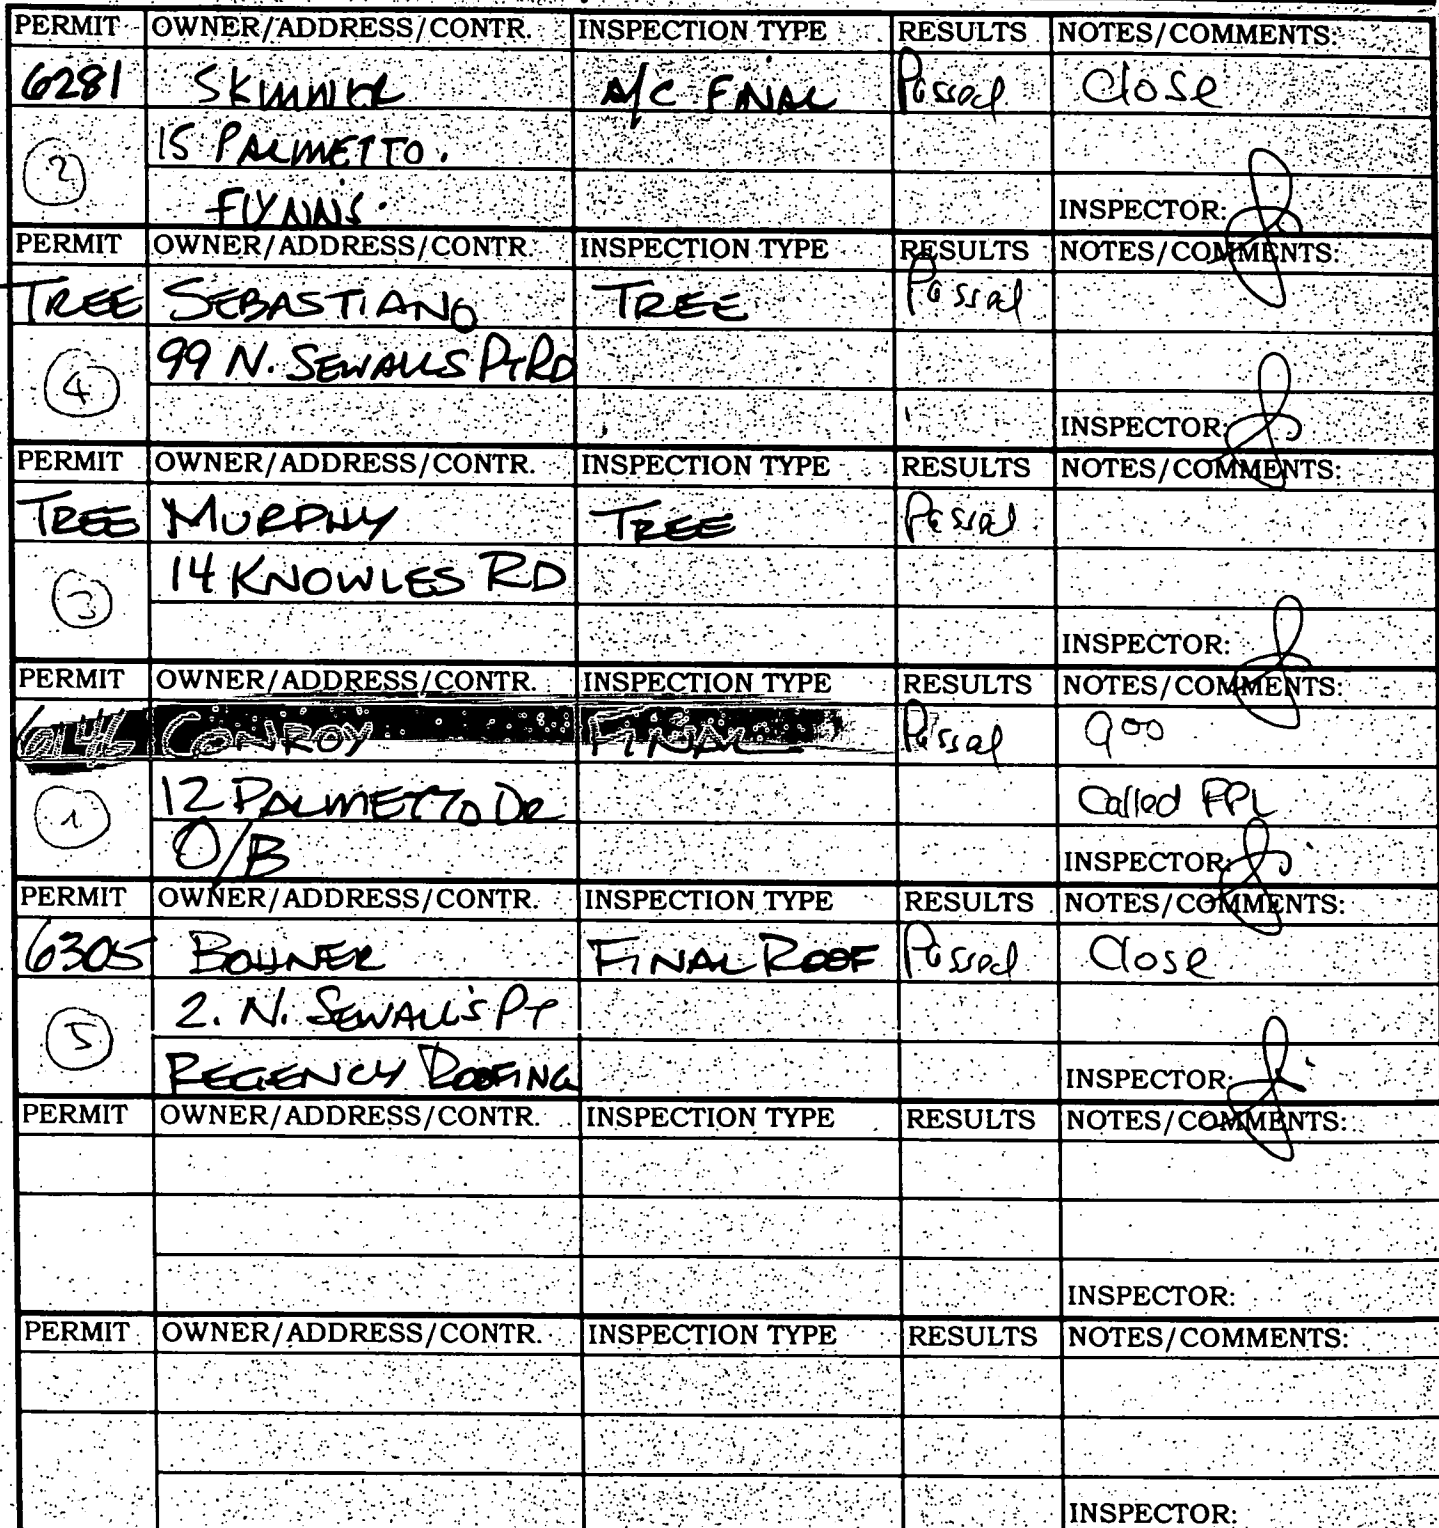 PERMIT OWNER/ADDRESS/CONTR. INSPECTION TYPE RESULTS NOTES/COMMENTS:
6281 SKINNER A/C FINAL Passed Close
2 15 PALMETTO.
FLYNN'S. INSPECTOR:
PERMIT OWNER/ADDRESS/CONTR. INSPECTION TYPE RESULTS NOTES/COMMENTS:
TREE SEBASTIANO TREE Passed
4 99 N. SEWALLS PT RD
INSPECTOR:
PERMIT OWNER/ADDRESS/CONTR. INSPECTION TYPE RESULTS NOTES/COMMENTS:
TREE MURPHY TREE Passed
3 14 KNOWLES RD
INSPECTOR:
PERMIT OWNER/ADDRESS/CONTR. INSPECTION TYPE RESULTS NOTES/COMMENTS:
CONROY FINAL Passed 900
1 12 PALMETTO DR Called FPL
O/B INSPECTOR:
PERMIT OWNER/ADDRESS/CONTR. INSPECTION TYPE RESULTS NOTES/COMMENTS:
6305 BOHNER FINAL ROOF Passed Close
5 2. N. SEWALL'S PT
REGENCY ROOFING INSPECTOR:
PERMIT OWNER/ADDRESS/CONTR. INSPECTION TYPE RESULTS NOTES/COMMENTS:
INSPECTOR:
PERMIT OWNER/ADDRESS/CONTR. INSPECTION TYPE RESULTS NOTES/COMMENTS:
INSPECTOR: